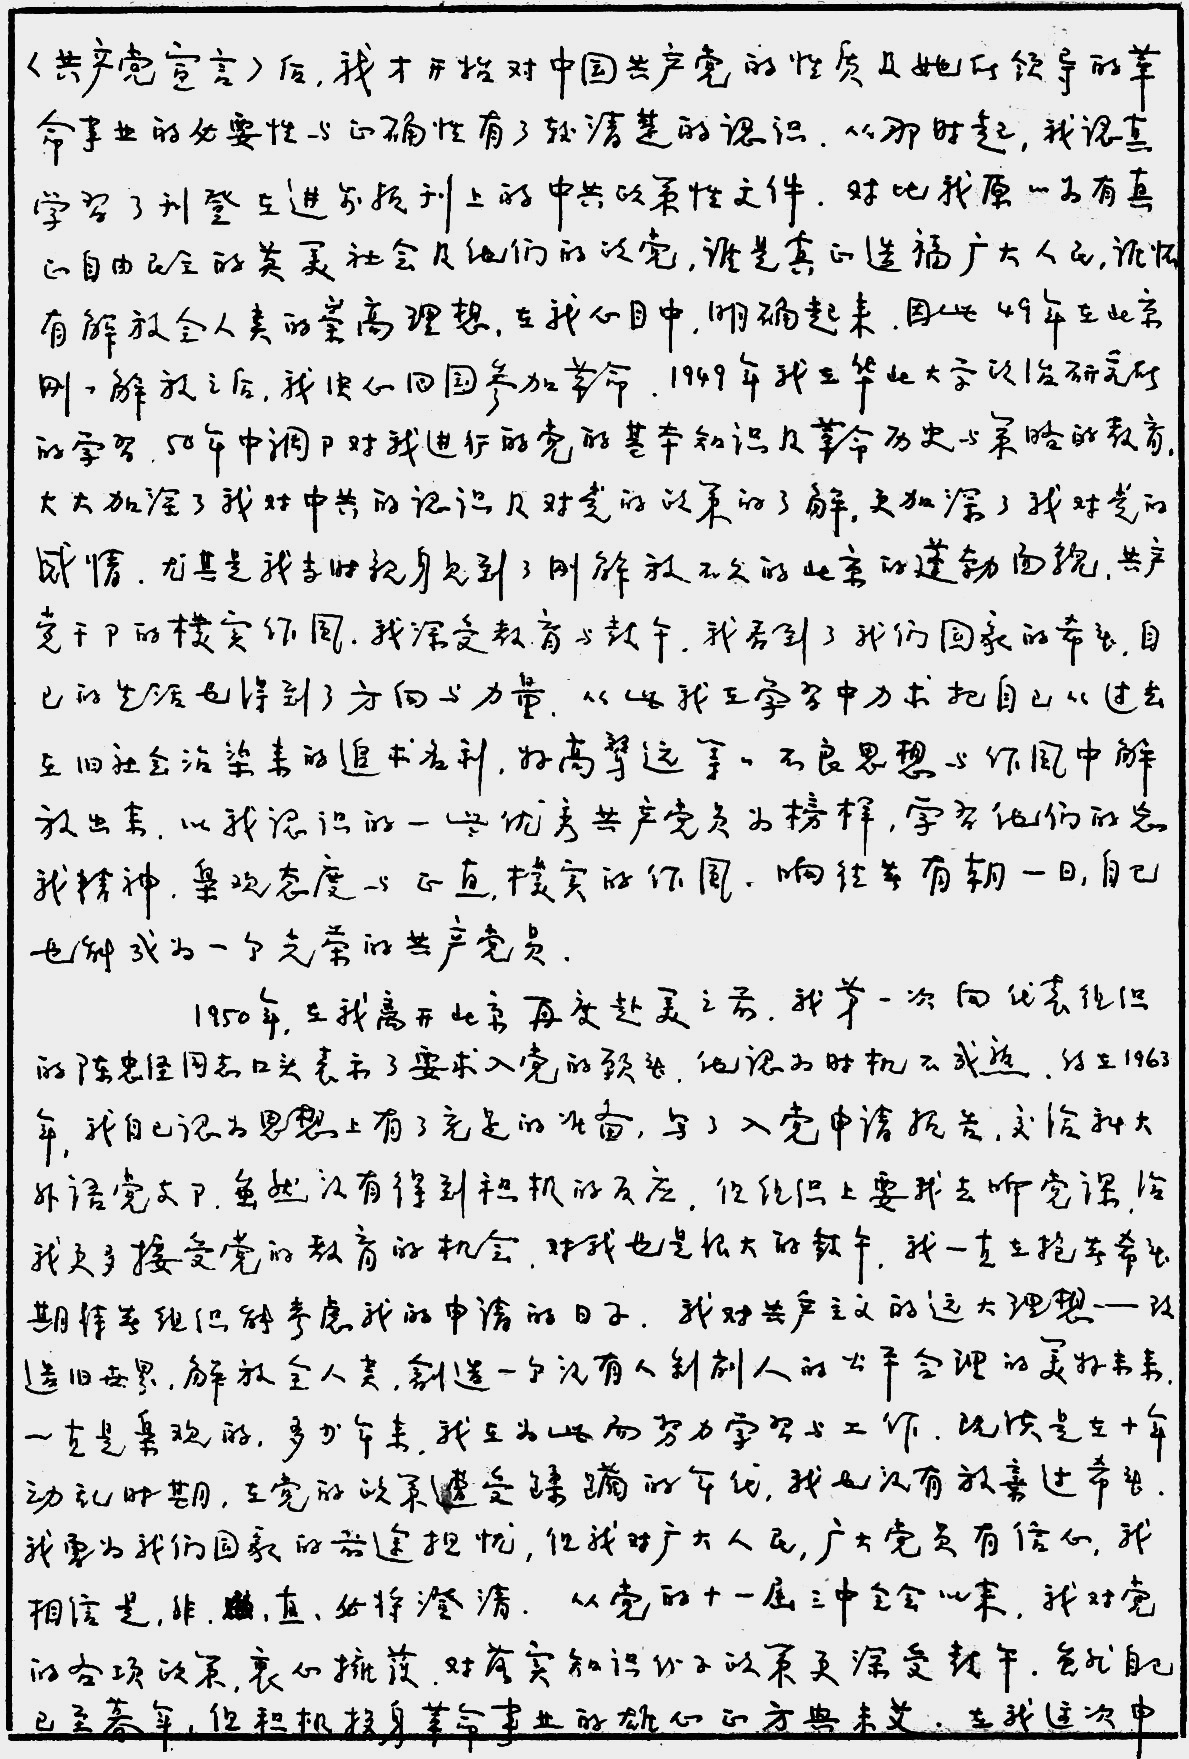 《共产党宣言》后，我才开始对中国共产党的性质及她所领导的革
命事业的必要性与正确性有了较清楚的认识．从那时起，我认真
学习了刊登在进步报刊上的中共政策性文件．对比我原以为有真
正自由民主的英美社会及他们的政党，谁是真正造福广大人民，谁怀
有解放全人类的崇高理想，在我心目中，明确起来．因此49年在北京
刚刚解放之后，我决心回国参加革命．1949年我在华北大学政治研究所
的学习，50年中调部对我进行的党的基本知识及革命历史与策略的教育，
大大加深了我对中共的认识及对党的政策的了解，更加深了我对党的
感情．尤其是我当时亲身见到了刚解放不久的北京的蓬勃面貌，共产
党干部的朴实作风．我深受教育与鼓午．我看到了我们国家的希望，自
己的生活也得到了方向与力量．从此我在学习中力求把自己从过去
在旧社会沾染来的追求名利，好高骛远等等不良思想与作风中解
放出来．以我认识的一些优秀共产党员为榜样，学习他们的忘
我精神．乐观态度与正直，朴实的作风．响往着有朝一日，自己
也能成为一个光荣的共产党员．
1950年，在我离开北京再度赴美之前．我第一次向代表组织
的陈忠经同志口头表示了要求入党的愿望．他认为时机不成熟．待在1963
年，我自己认为思想上有了充足的准备，写了入党申请报告，交给科大
外语党支部．虽然没有得到积极的反应，但组织上要我去听党课，给
我更多接受党的教育的机会．对我也是很大的鼓午．我一直在抱着希望
期待着组织能考虑我的申请的日子．我对共产主义的远大理想——改
造旧世界，解放全人类，创造一个没有人剥削人的公平合理的美好未来，
一直是乐观的．多少年来，我在为此而努力学习与工作．既使是在十年
动乱时期，在党的政策遭受蹂躏的年代，我也没有放弃过希望．
我更为我们国家的前途担忧，但我对广大人民，广大党员有信心，我
相信是，非．直，必将澄清．从党的十一届三中全会以来，我对党
的各项政策，衷心拥护．对落实知识份子政策更深受鼓午．虽然自己
已至暮年，但积极投身革命事业的雄心正方兴未艾．在我这次中